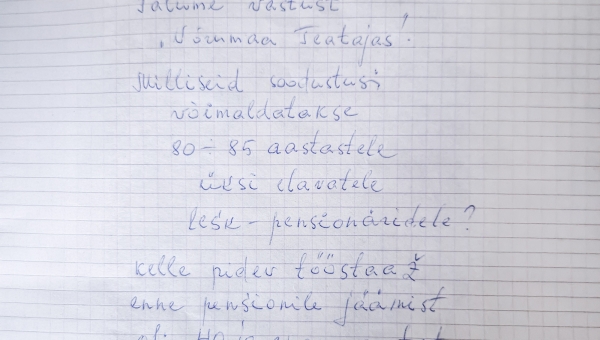 Palume vastust
"Võrumaa Teatajas"!
Milliseid soodustusi
võimaldatakse
80÷85 aastastele
üksi elavatele
lesk-pensionäridele?
kelle pidev tööstaaž
enne pensionile jäämist
oli 40